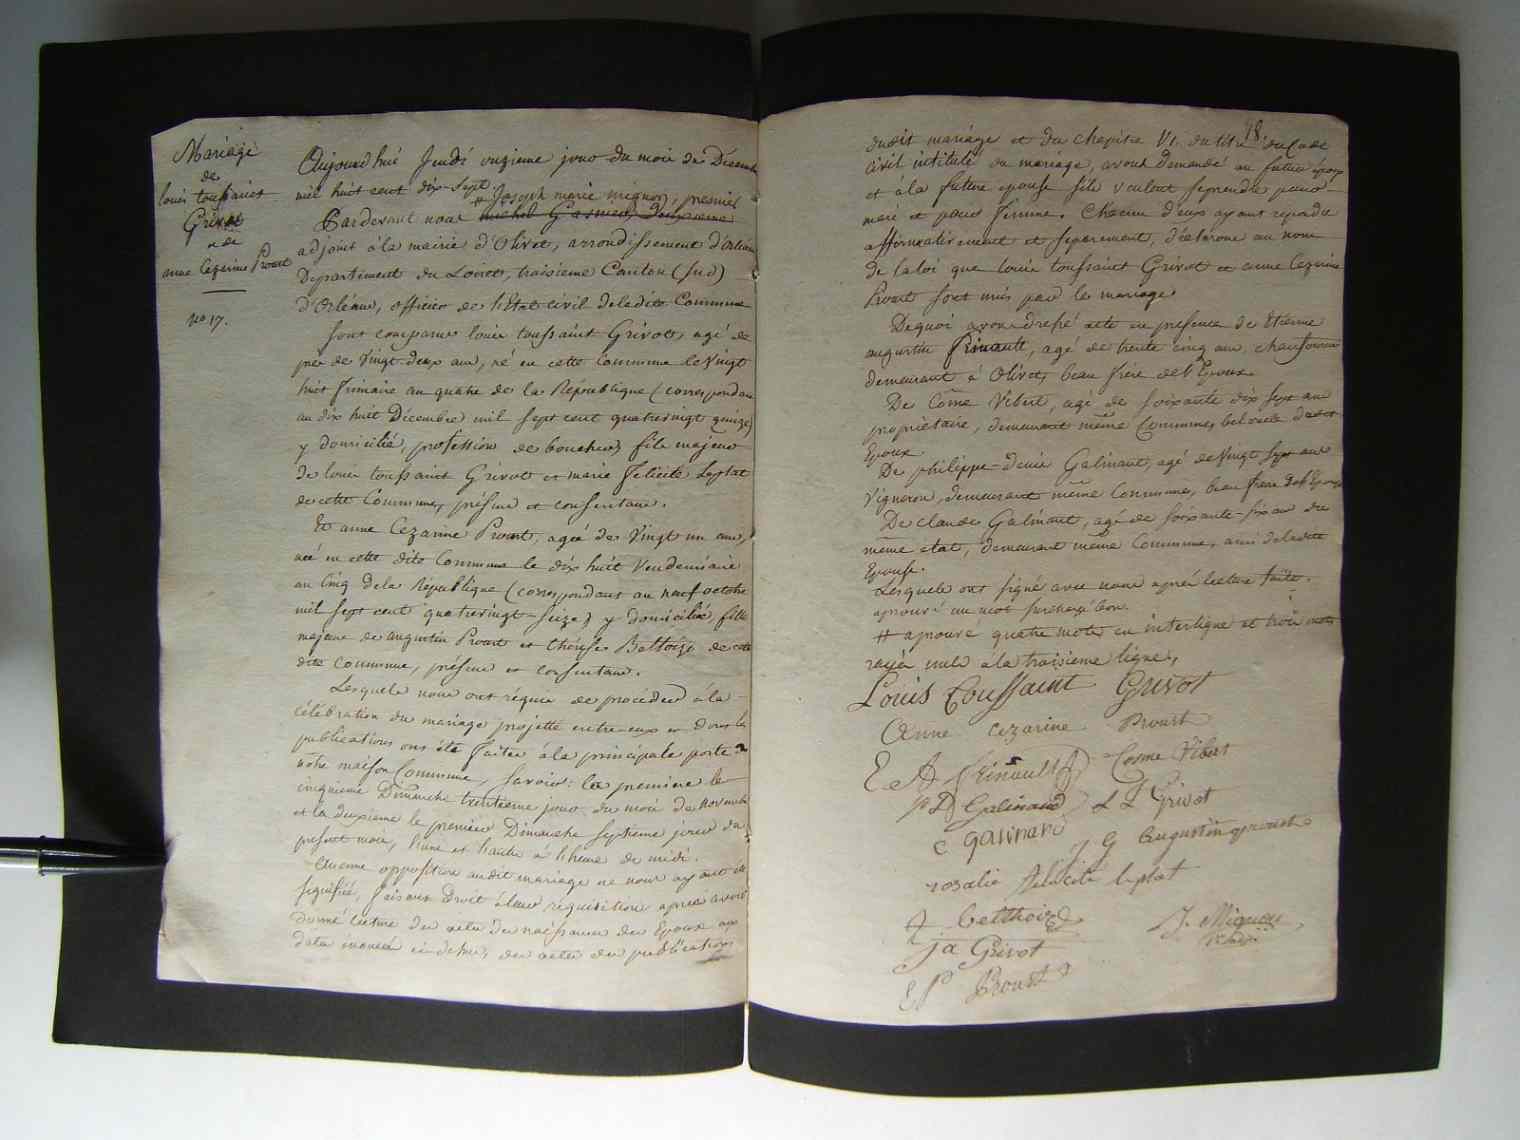 Mariage
de
louis toussaint
Grivot
et de
anne Cezarine Proust
no 17.
Aujourd'hui Jeudi onzieme jour du mois de Décembre
mil huit cent dix-sept
# Joseph marie mignon, premier
Pardevant nous michel deuxieme
adjoint à la mairie d'Olivet, arrondissement d'Orléans
Département du Loiret, troisieme Canton (sud)
d'Orléans, officier de l'Etat civil deladite Commune
sont comparus louis toussaint Grivot, agé de
près de vingt-deux ans, né en cette Commune le vingt
huit frimaire an quatre de la République (correspondant
au dix huit Décembre mil sept cent quatrevingt quinze)
y domicilié, profession de boucher, fils majeur
de louis toussaint Grivot et marie felicité Leplat
de cette Commune, présens et consentans.
Et anne Cezarine Proust, agée de vingt un ans,
née en cette dite Commune le dix huit Vendemiaire
an Cinq dela République (correspondant au neuf octobre
mil sept cent quatrevingt-seize) y domiciliée, fille
majeure de augustin Proust et thérèse Bettoize de cette
dite Commune, présens et consentans.
Lesquels nous ont réquis de procéder à la
célébration du mariage projetté entre-eux et dont les
publications ont été faites à la principale porte de
notre maison Commune, savoir: la premiere le
cinquieme Dimanche trentieme jour du mois de novembre
et la deuxieme le premier Dimanche septieme jour du
présent mois, l'une et l'autre à l'heure de midi.
Aucune opposition audit mariage ne nous ayant été
signifiée, faisant droit à leur réquisition après avoir
donné lecture des actes de naissance des Epoux aux
dates énoncées ci-dessus, des actes des publications
18.
dudit mariage et du chapitre VI. du titre du Code
civil intitulé du mariage, avons demandé au futur époux
et à la future epouse s'ils veulent se prendre pour
mari et pour femme. Chacun d'eux ayant répondu
affirmativement et séparement, déclarons au nom
de la loi que louis toussaint Grivot et anne Cezarine
Proust sont unis par le mariage
De quoi avons dressé acte en présence de Etienne
augustin Feinault, agé de trente cinq ans, chaufournier
demeurant à Olivet, beau frere de l'Epoux
De Côme Vibert, agé de soixante dix sept ans
propriétaire, demeurant même Commune, bel oncle dudit
Epoux
De philippe-Denis Galinant, agé de vingt sept ans
vigneron, demeurant même Commune, beau frere de l'Epouse
De claude Galinant, agé de soixante-six ans du
même état, demeurant même Commune, ami deladite
Epouse.
Lesquels ont signé avec nous après lecture faite.
aprouvé un mot surchargé bon.
# aprouvé quatre mots en interligne et trois mots
rayés nuls à la troisieme ligne,
Louis Toussaint Grivot
Anne Cezarine Proust
E A Feinault Cosme Vibert
P D Galinand L T Grivot
C galinand J G Augustin proust
rosalie Félicité Leplat
T betthoize J. Mignon
ja Grivot
E P Proust